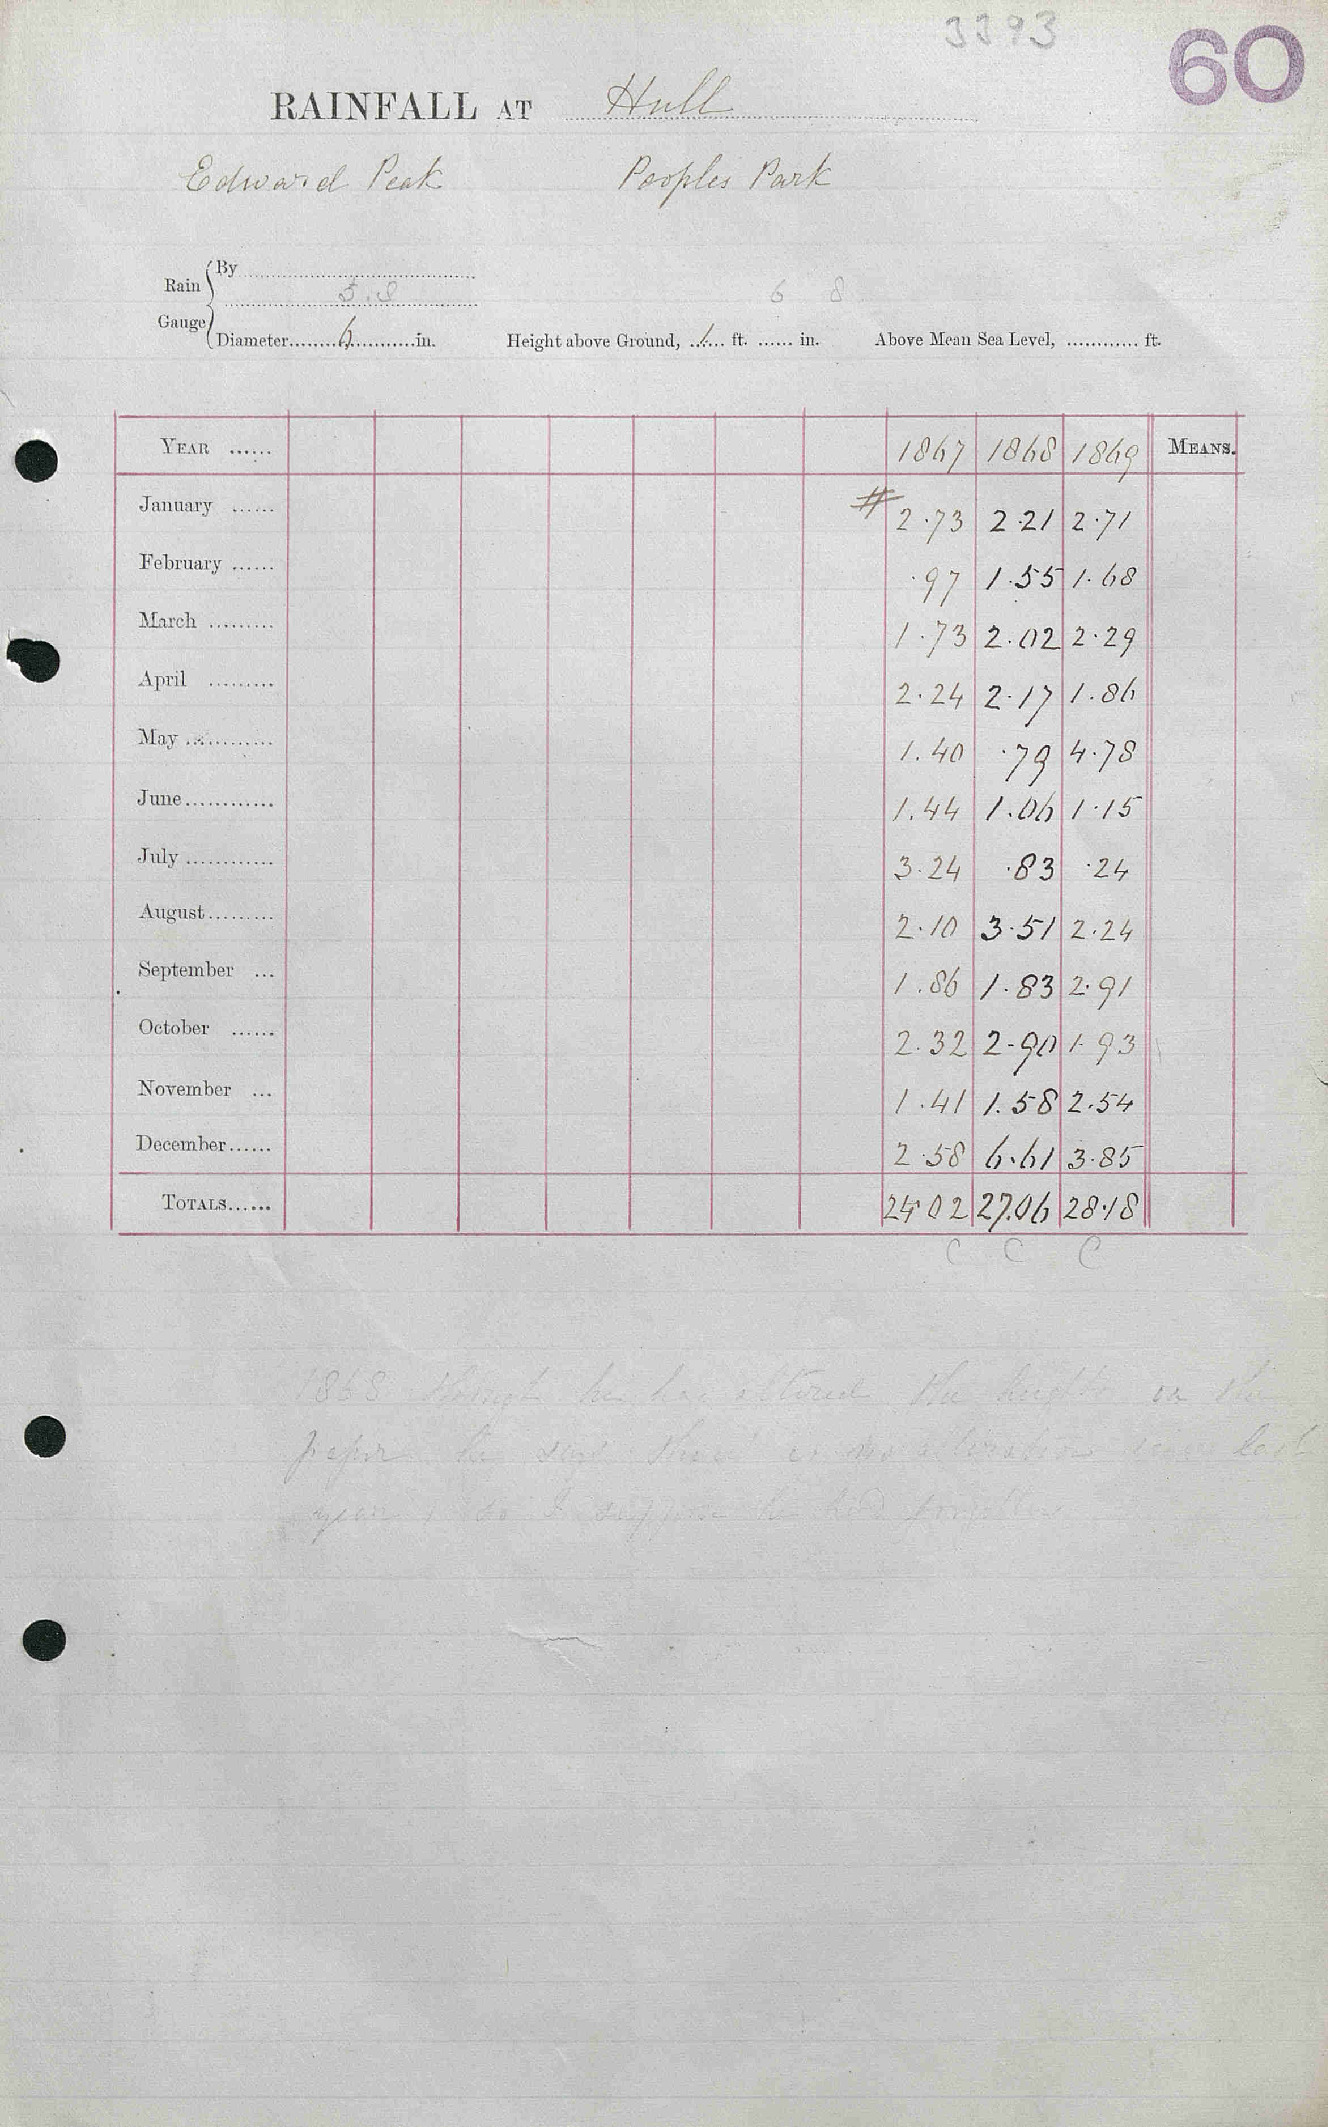 3393
60
RAINFALL AT Hull
Edward Peak Peoples Park
Rain Gauge
By
5.8 6 8
Diameter 6 in. Height above Ground, 1 ft. in. Above Mean Sea Level, ft.
YEAR 1867 1868 1869 MEANS.
January # 2.73 2.21 2.71
February .97 1.55 1.68
March 1.73 2.02 2.29
April 2.24 2.17 1.86
May 1.40 .79 4.78
June 1.44 1.06 1.15
July 3.24 .83 .24
August 2.10 3.51 2.24
September 1.86 1.83 2.91
October 2.32 2.90 1.93
November 1.41 1.58 2.54
December 2.58 6.61 3.85
TOTALS 24.02 27.06 28.18
C C C
1868 he has altered the heights on the
paper he says there is no alteration last
year so I suppose he had forgotten